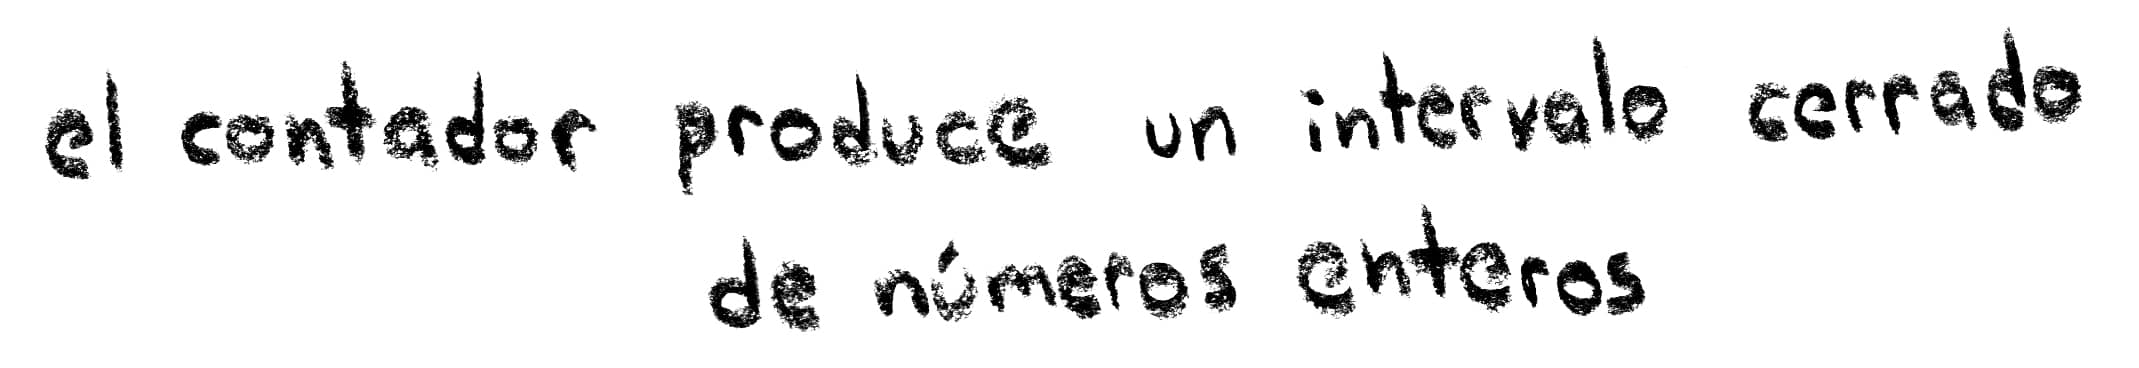 el contador produce un intervalo cerrado
de números enteros